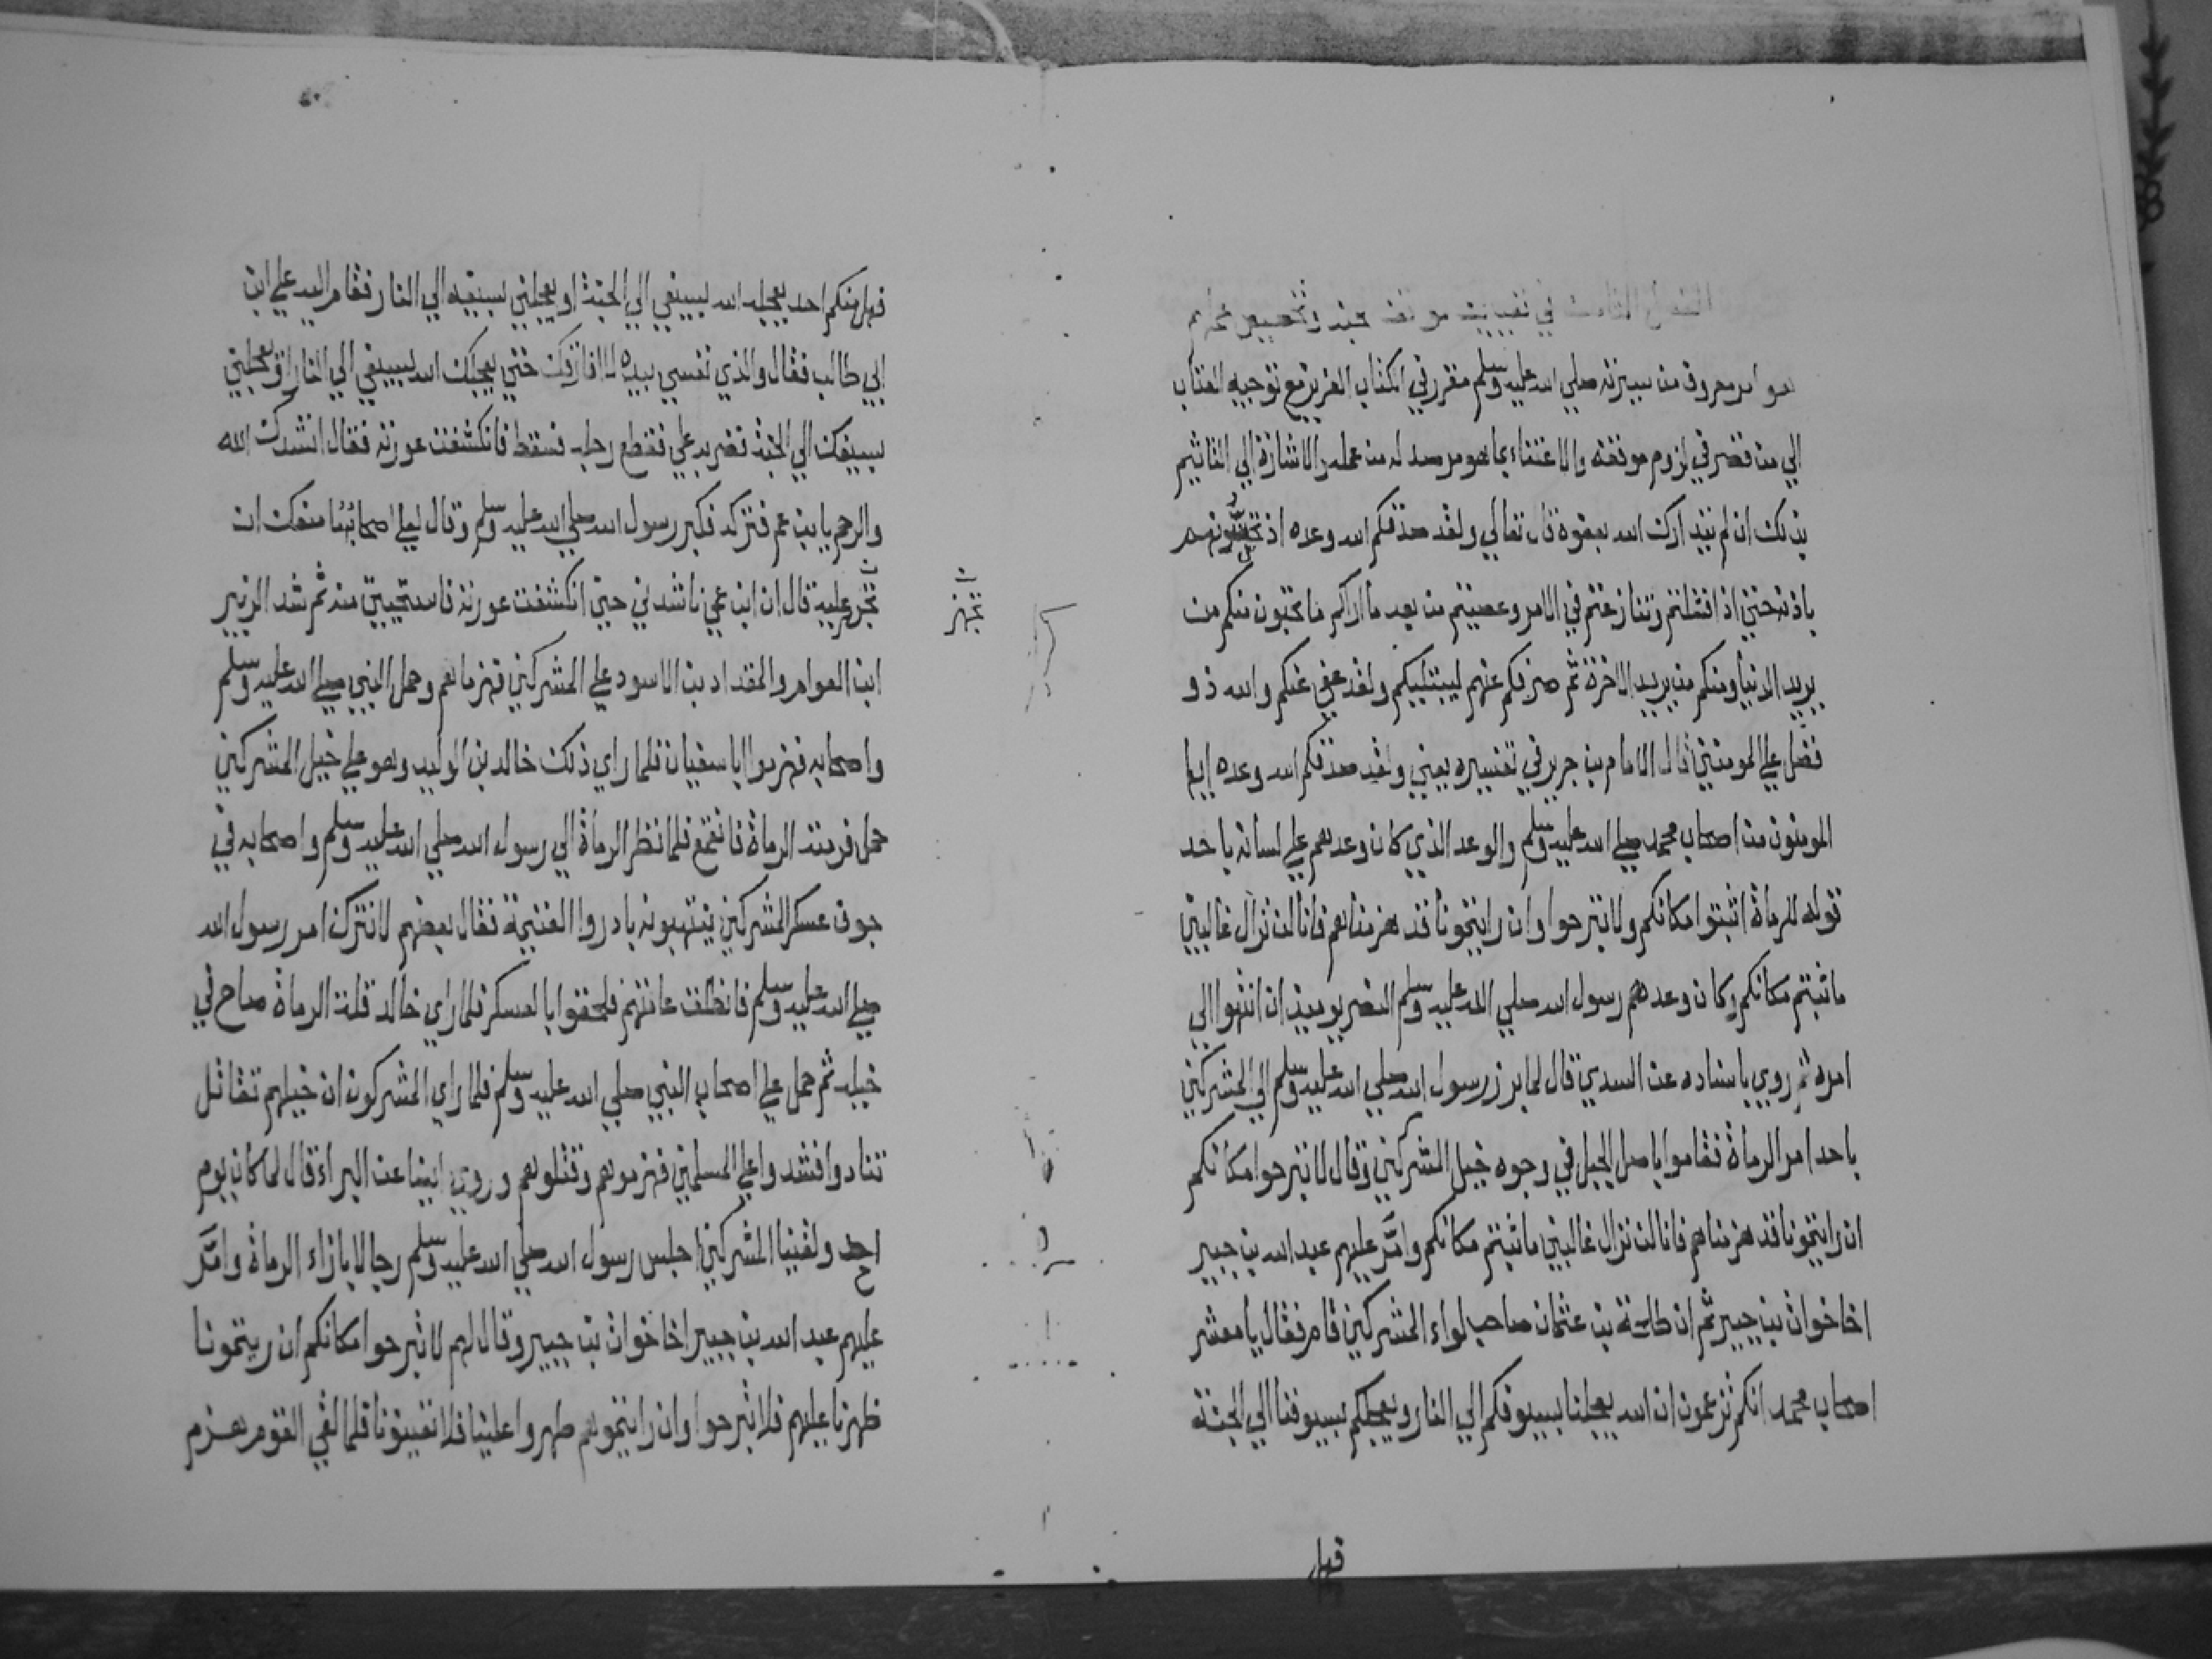 الفصل الثامن في تعيين موقف جند وتخصيص محلهم
هو امر معروف من سيرته صلي الله عليه وسلم مقرر في الكتاب العزيز مع توجيه العتاب
الي من قصر في لزوم موقفه والاعتناء بما هو مرصد له من عمله والاشارة الي التاثيم
بذلك ان لم يتدارك الله بعفوه قال تعالي ولقد صدقكم الله وعده اذ تحسونهم
باذنه حتي اذا فشلتم وتنازعتم في الامر وعصيتم من بعد ما اراكم ما تحبون منكم من
يريد الدنيا ومنكم من يريد الاخرة ثم صرفكم عنهم ليبتليكم ولقد عفي عنكم والله ذو
فضل علي المومنين قال الامام بن جرير في تفسيره يعني ولقد صدقكم الله وعده ايها
المومنون من اصحاب محمد صلي الله عليه وسلم والوعد الذي كان وعدهم علي لسانه باحد
قوله للرماة اثبتوا مكانكم ولا تبرحوا وان رايتمونا قد هزمناهم فانا لن نزال غالبين
ما ثبتم مكانكم وكان وعدهم رسول الله صلي الله عليه وسلم النصر يوميذ ان انتهوا الي
امره ثم روي باسناده عن السدي قال لما برز رسول الله صلي الله عليه وسلم الي المشركين
باحد امر الرماة فقاموا باصل الجبل في وجوه خيل المشركين وقال لا تبرحوا مكانكم
ان رايتمونا قد هزمناهم فانا لن نزال غالبين ما ثبتم مكانكم وامَّر عليهم عبد الله بن جبير
اخا خوان بن جبير ثم ان طلحة بن عثمان صاحب لواء المشركين قام فقال يا معشر
اصحاب محمد انكم تزعمون ان الله يعجلنا بسيوفكم الي النار ويعجلكم بسيوفنا الي الجنة
فهل
فهل منكم احد يعجله الله بسيفي الي الجنة او يعجلني بسيفه الي النار فقام اليه علي ابن
ابي طالب فقال والذي نفسي بيده لا افارقك حتي يعجلك الله بسيفي الي النار او يعجلني
بسيفك الي الجنة فضربه علي فقطع رجله فسقط فانكشفت عورته فقال انشدك الله
والرحم يا بن عم فتركه فكبر رسول الله صلي الله عليه وسلم وقال لعلي اصحابه ما منعك ان
تجهز عليه قال ان ابن عمي ناشدني حين انكشفت عورته فاستحييت منه ثم شد الزبير
تجهز
ابن العوام والمقداد بن الاسود علي المشركين فهزماهم وحمل النبي صلي الله عليه وسلم
واصحابه فهزموا ابا سفيان فلما راي ذلك خالد بن الوليد وهو علي خيل المشركين
حمل فرمته الرماة فانقمع فلما نظر الرماة الي رسول الله صلي الله عليه وسلم واصحابه في
جوف عسكر المشركين ينتهبونه بادروا الغنيمة فقال بعضهم لا نترك امر رسول الله
صلي الله عليه وسلم فانطلق عامتهم فلحقوا بالعسكر فلما راي خالد قلة الرماة صاح في
خيله ثم حمل علي اصحاب النبي صلي الله عليه وسلم فلما راي المشركون ان خيلهم تقاتل
تنادوا فشدوا علي المسلمين فهزموهم وقتلوهم وروي ايضا عن البراء قال لما كان يوم
احد ولقينا المشركين اجلس رسول الله صلي الله عليه وسلم رجالا بازاء الرماة وامَّر
عليهم عبد الله بن جبير اخا خوان بن جبير وقال لهم لا تبرحوا مكانكم ان ريتمونا
ظهرنا عليهم فلا تبرحوا وان رايتموهم ظهروا علينا فلا تعينونا فلما لقي القوم هزم